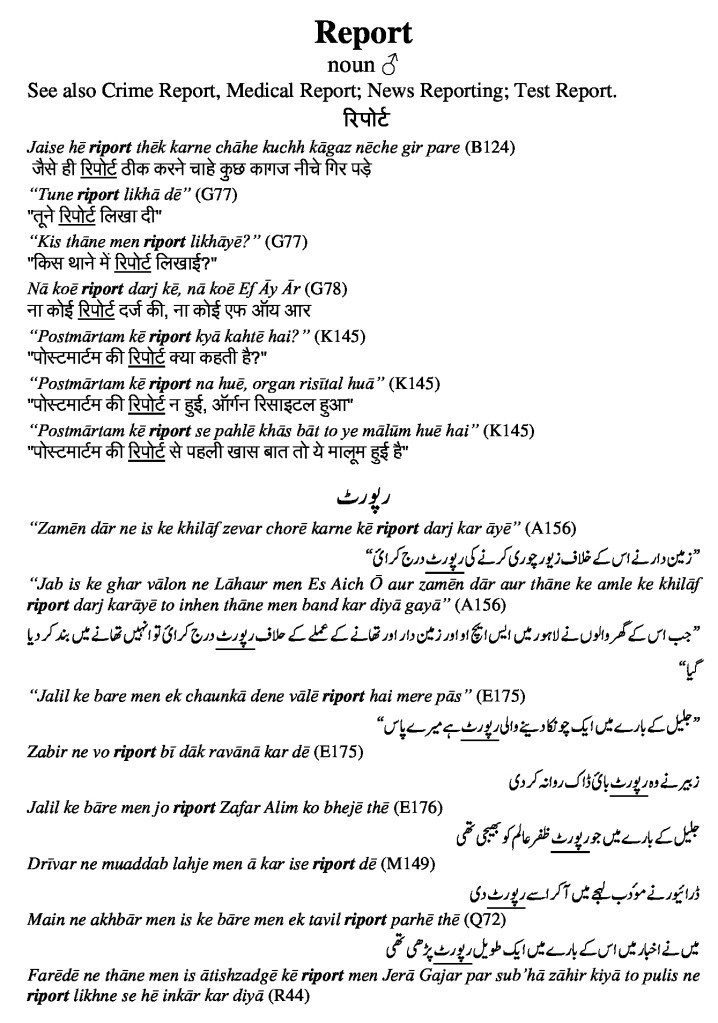 Report
noun ♂
See also Crime Report, Medical Report; News Reporting; Test Report.
रिपोर्ट
Jaise hē riport thēk karne chāhe kuchh kāgaz nēche gir pare (B124)
जैसे ही रिपोर्ट ठीक करने चाहे कुछ कागज नीचे गिर पड़े
“Tune riport likhā dē” (G77)
"तूने रिपोर्ट लिखा दी"
“Kis thāne men riport likhāyē?” (G77)
"किस थाने में रिपोर्ट लिखाई?"
Nā koē riport darj kē, nā koē Ef Āy Ār (G78)
ना कोई रिपोर्ट दर्ज की, ना कोई एफ ऑय आर
“Postmārtam kē riport kyā kahtē hai?” (K145)
"पोस्टमार्टम की रिपोर्ट क्या कहती है?"
“Postmārtam kē riport na huē, organ risītal huā” (K145)
"पोस्टमार्टम की रिपोर्ट न हुई, ऑर्गन रिसाइटल हुआ"
“Postmārtam kē riport se pahlē khās bāt to ye mālūm huē hai” (K145)
"पोस्टमार्टम की रिपोर्ट से पहली खास बात तो ये मालूम हुई है"
رپورٹ
“Zamēn dār ne is ke khilāf zevar chorē karne kē riport darj kar āyē” (A156)
”زمین دار نے اس کے خلاف زیور چوری کرنے کی رپورٹ درج کرائ“
“Jab is ke ghar vālon ne Lāhaur men Es Aich Ō aur zamēn dār aur thāne ke amle ke khilāf
riport darj karāyē to inhen thāne men band kar diyā gayā” (A156)
”جب اس کے گھر والوں نے لاہور میں ایس ایچ او اور زمین دار اور تھانے کے عملے کے خلاف رپورٹ درج کرائ تو انہیں تھانے میں بند کر دیا
گیا“
“Jalil ke bare men ek chaunkā dene vālē riport hai mere pās” (E175)
”جلیل کے بارے میں ایک چونکا دینے والی رپورٹ ہے میرے پاس“
Zabir ne vo riport bī dāk ravānā kar dē (E175)
زبیر نے وہ رپورٹ بائ ڈاک روانہ کر دی
Jalil ke bāre men jo riport Zafar Alim ko bhejē thē (E176)
جلیل کے بارے میں جو رپورٹ ظفر عالم کو بھیجی تھی
Drīvar ne muaddab lahje men ā kar ise riport dē (M149)
ڈرائیور نے مؤدب لہجے میں آ کر اسے رپورٹ دی
Main ne akhbār men is ke bāre men ek tavil riport parhē thē (Q72)
میں نے اخبار میں اس کے بارے میں ایک طویل رپورٹ پڑھی تھی
Farēdē ne thāne men is ātishzadgē kē riport men Jerā Gajar par sub’hā zāhir kiyā to pulis ne
riport likhne se hē inkār kar diyā (R44)